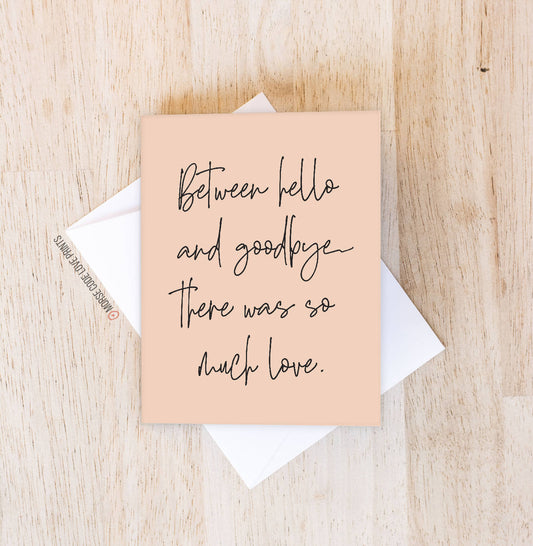 Between hello
and goodbye
there was so
much love.
MORSE CODE LOVE PRINTS